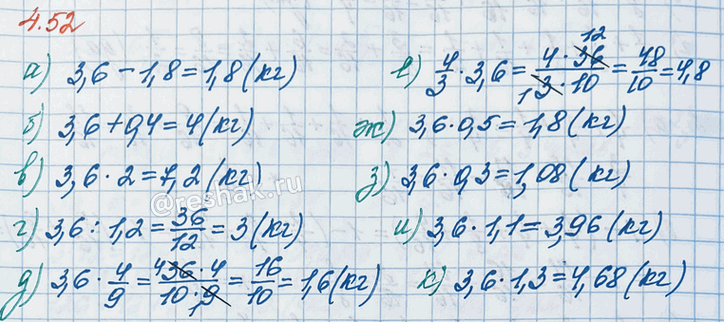 4.52
а) 3,6 − 1,8 = 1,8 (кг)
б) 3,6 + 0,4 = 4 (кг)
в) 3,6 · 2 = 7,2 (кг)
г) 3,6 : 1,2 = 36/12 = 3 (кг)
д) 3,6 · 4/9 = ⁴36 · 4/10 · ₁9 = 16/10 = 1,6 (кг)
е) 4/3 · 3,6 = 4 · 36¹²/₁3 · 10 = 48/10 = 4,8
ж) 3,6 · 0,5 = 1,8 (кг)
з) 3,6 · 0,3 = 1,08 (кг)
и) 3,6 · 1,1 = 3,96 (кг)
к) 3,6 · 1,3 = 4,68 (кг)
@reshak.ru